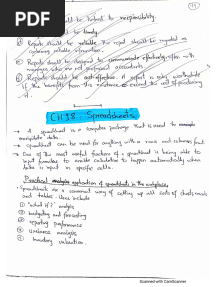 PDF
should be linked to responsibility.
Reports should be timely.
Reports should be reliable. The report should be regarded as
containing reliable information.
Reports should be designed to communicate effectively, often with
managers who are not professional accountants.
Reports should be cost-effective. A report is only worthwhile
if the benefits from its existence exceed the cost of producing
it.
CH 18: Spreadsheets
→ A spreadsheet is a computer package that is used to
manipulate data.
→ spreadsheet can be used for anything with a rows and columns format.
→ One of the most useful functions of a spreadsheet is being able to
input formulae to enable calculation to happen automatically when
data is input in specific cells.
Practical application of spreadsheets in the workplace:
Spreadsheets are a common way of setting up all sorts of charts, records
and tables. Uses include
① "what if?" analysis
② budgeting and forecasting
③ reporting performance
④ variance analysis
⑤ inventory valuation.
Scanned with CamScanner